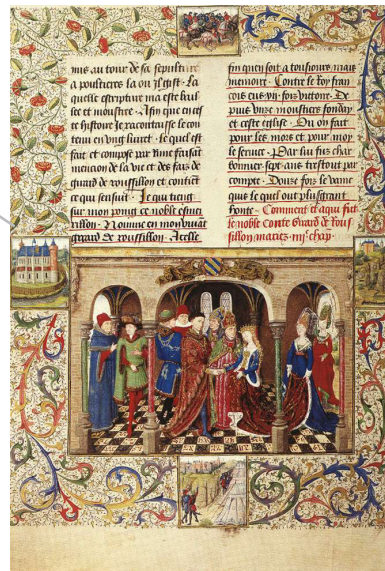 mis au tour de sa sepulture
a poultieres la ou il gist. La
quelle escripture ma este baul
lee et moustree. Afin que en ces
te histoire je racontaisse le con
tenu en ung livret. Le quel est
fait et compose par rime faisāt
mencion de la vie et des faiz de
gerard de roussillon et contiēt
ce qui sensuit. Je qui tieng
sur mon poing ce noble esmeri
rillon. Nomme en mon vivāt
gerard de roussillon. Aceste
fin quen soit a tousiours mais
memoire. Contre le Roy fran
cois eus .vii. fois victoire. Et
puis unze moustiers fonday
et ceste eglise. Ou on fait
pour les mors et pour moy
le service. Par lui fus char
bonnier sept ans trestout par
compte. Douze fois le vainc
que le quel out plus grant
honte. Comment et a qui fut
le noble Conte Gerard de Rous
sillon mariez. iiii. chap.